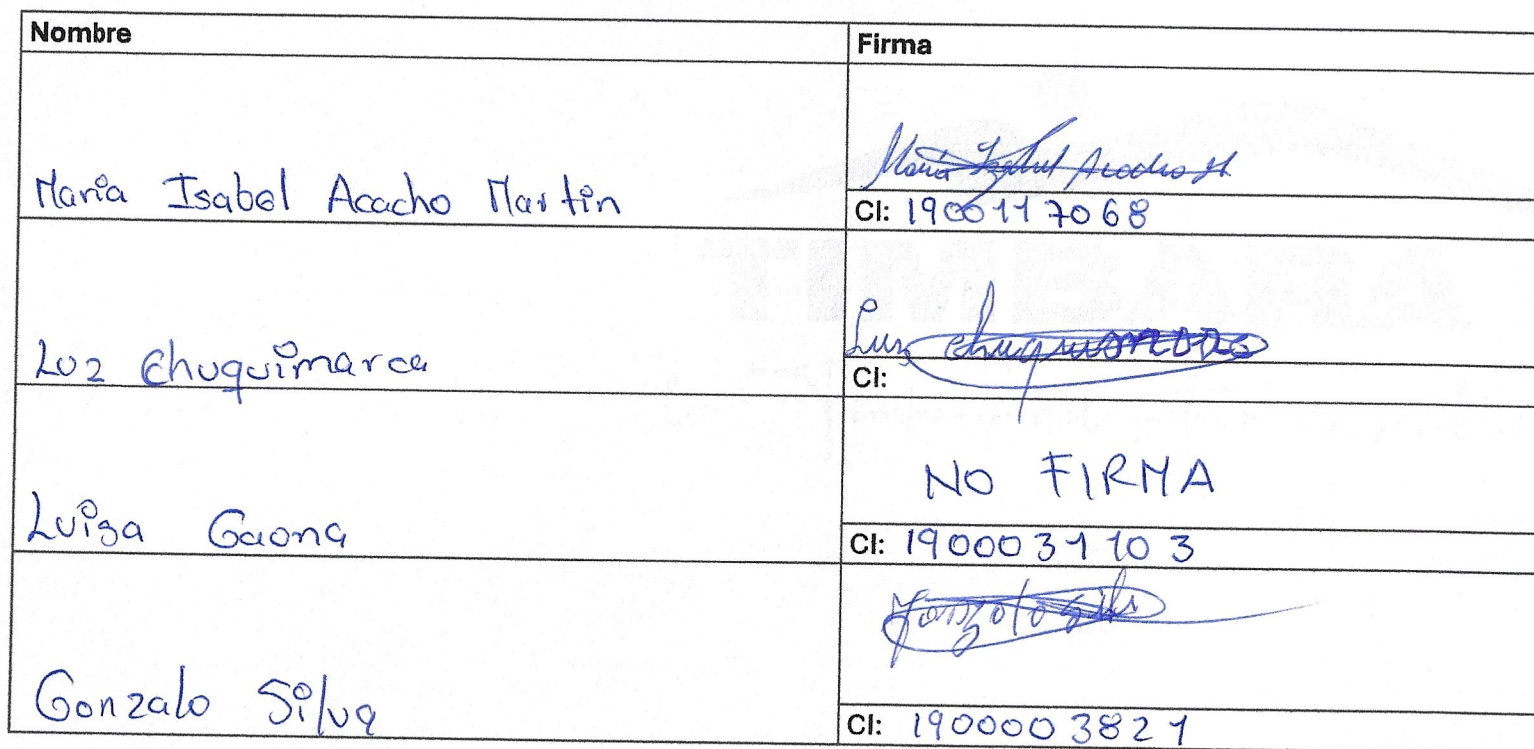 Nombre
Firma
Maria Isabel Acacho Martin
Maria Isabel Acacho M
CI: 1900117068
Luz Chuquimarca
Luz Chuquimarca
CI:
Luisa Gaona
NO FIRMA
CI: 1900031103
Gonzalo Silva
Gonzalo Silv
CI: 1900003821